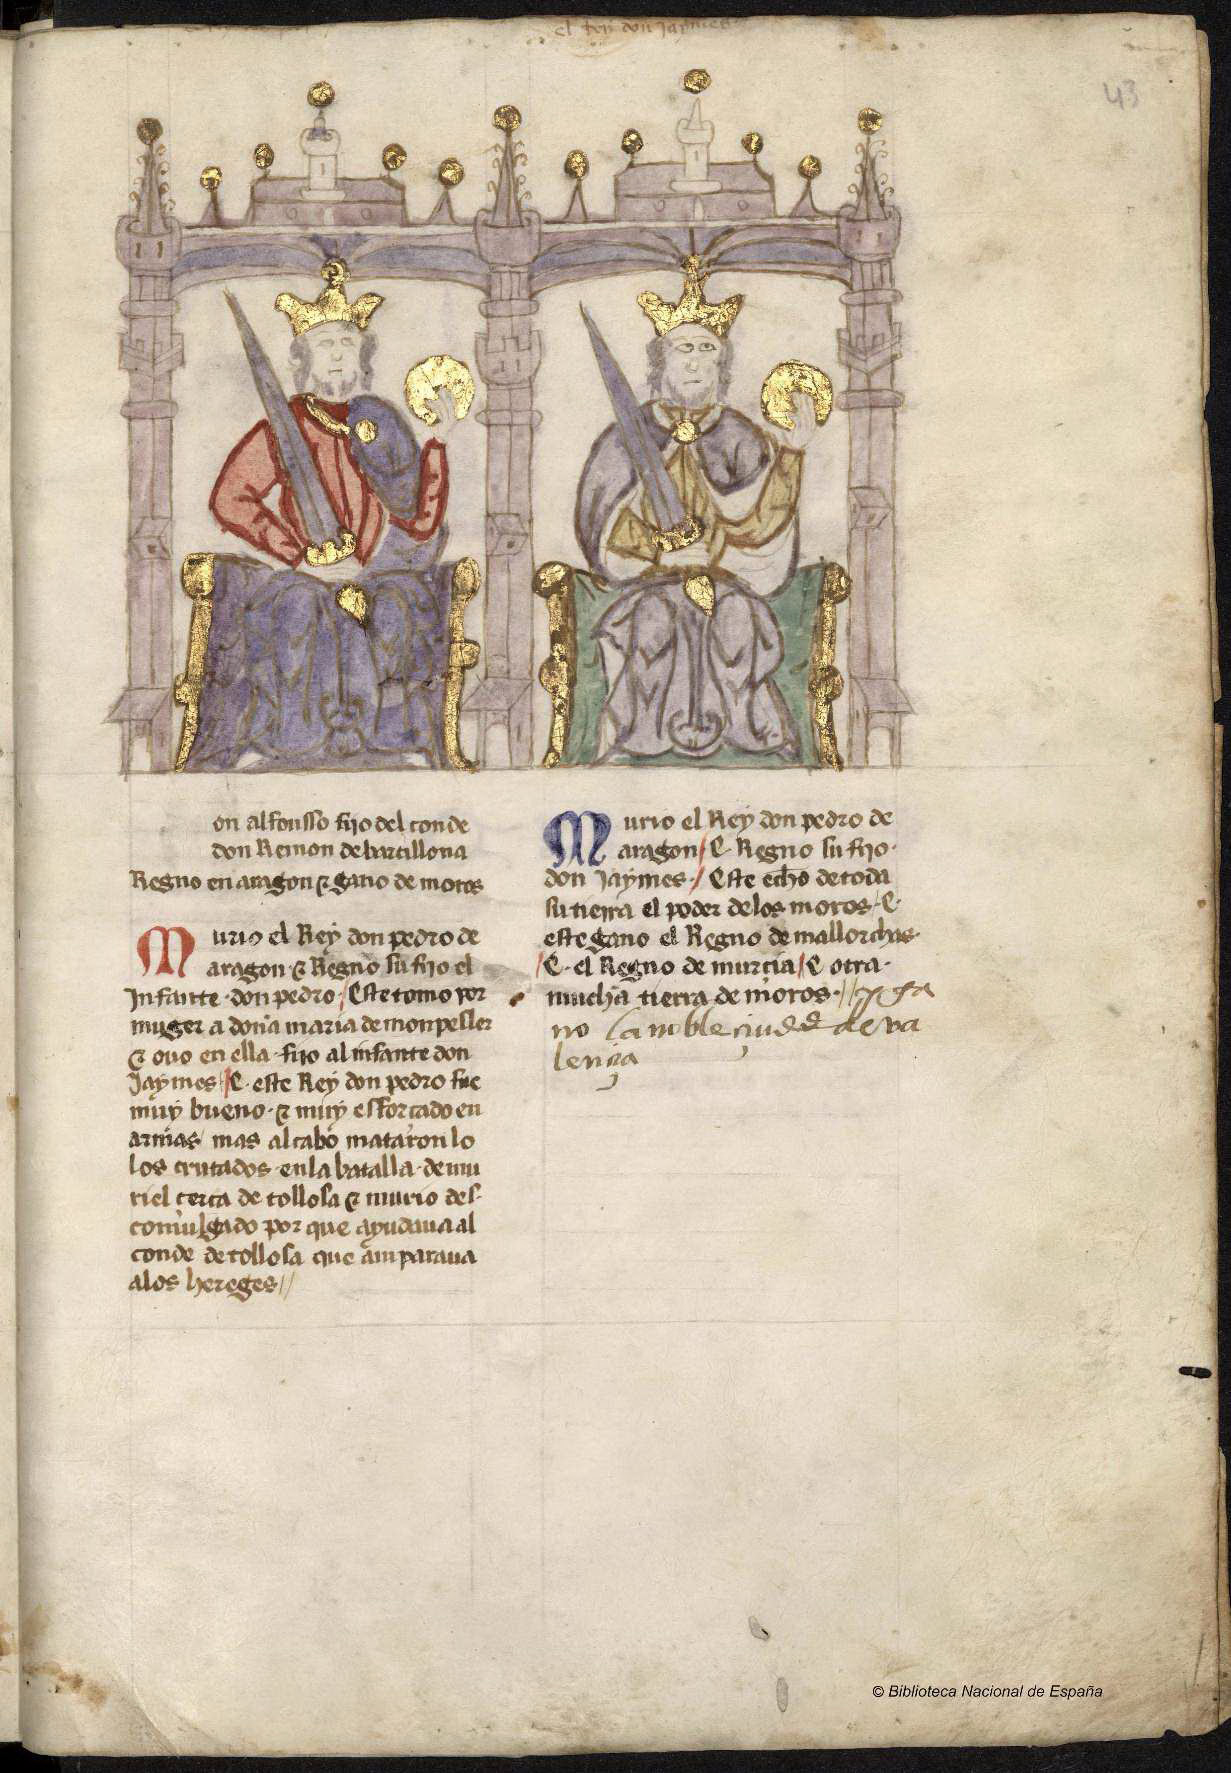 el Rey don Jaymes
43
on alfonsso fijo del conde
don Remon de barcillona
Regno en aragon & gano de moros
Murio el Rey don pedro de
aragon & Regno su fijo el
Infante don pedro / Este tomo por
muger a dona maria de monpesler
& ouo en ella fijo al infante don
Jaymes / E este Rey don pedro fue
muy bueno & muy esforcado en
armas mas al cabo mataron lo
los cruzados en la batalla de mu
riel cerca de tollosa & murio des
comulgado por que ayudaua al
conde de tollosa que amparaua
a los hereges //
Murio el Rey don pedro de
aragon / E Regno su fijo
don Jaymes / Este echo de toda
su tierra el poder de los moros E
este gano el Regno de mallorchas
/ E el Regno de murcia / E otra
mucha tierra de moros // y ga
no la noble ciudad de va
lencia
© Biblioteca Nacional de España